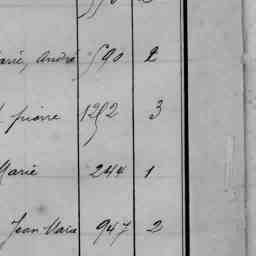 André 590 2
pierre 1252 3
Marie 244 1
Jean Marie 947 2